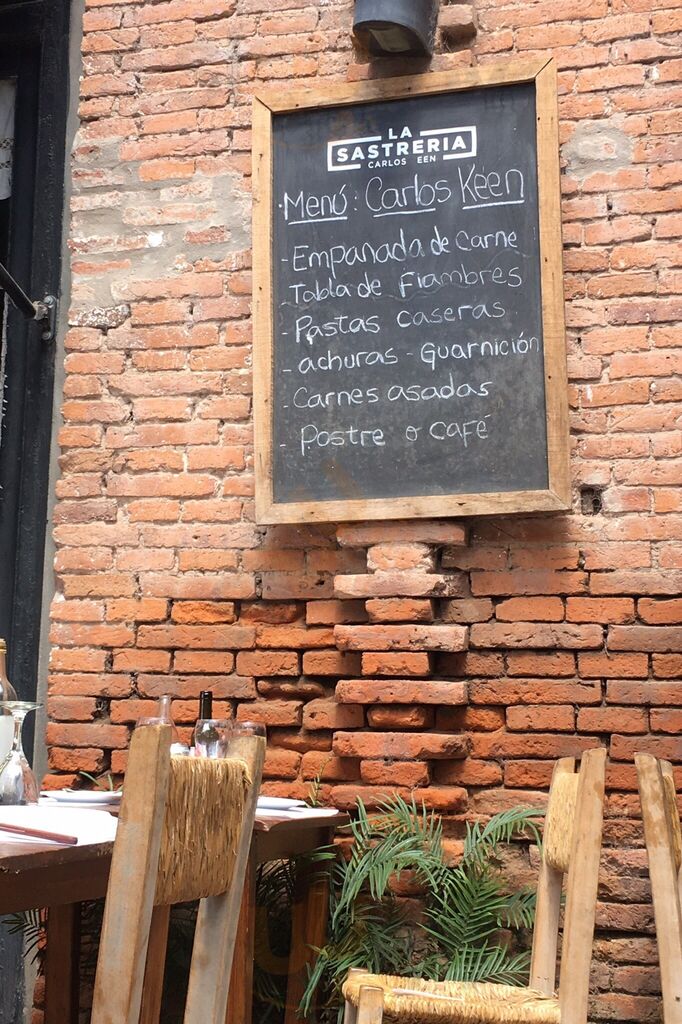 LA
SASTRERIA
CARLOS EEN
- Menú: Carlos Keen
- Empanada de Carne
Tabla de Fiambres
- Pastas Caseras
- achuras - Guarnición
- Carnes asadas
- Postre o café